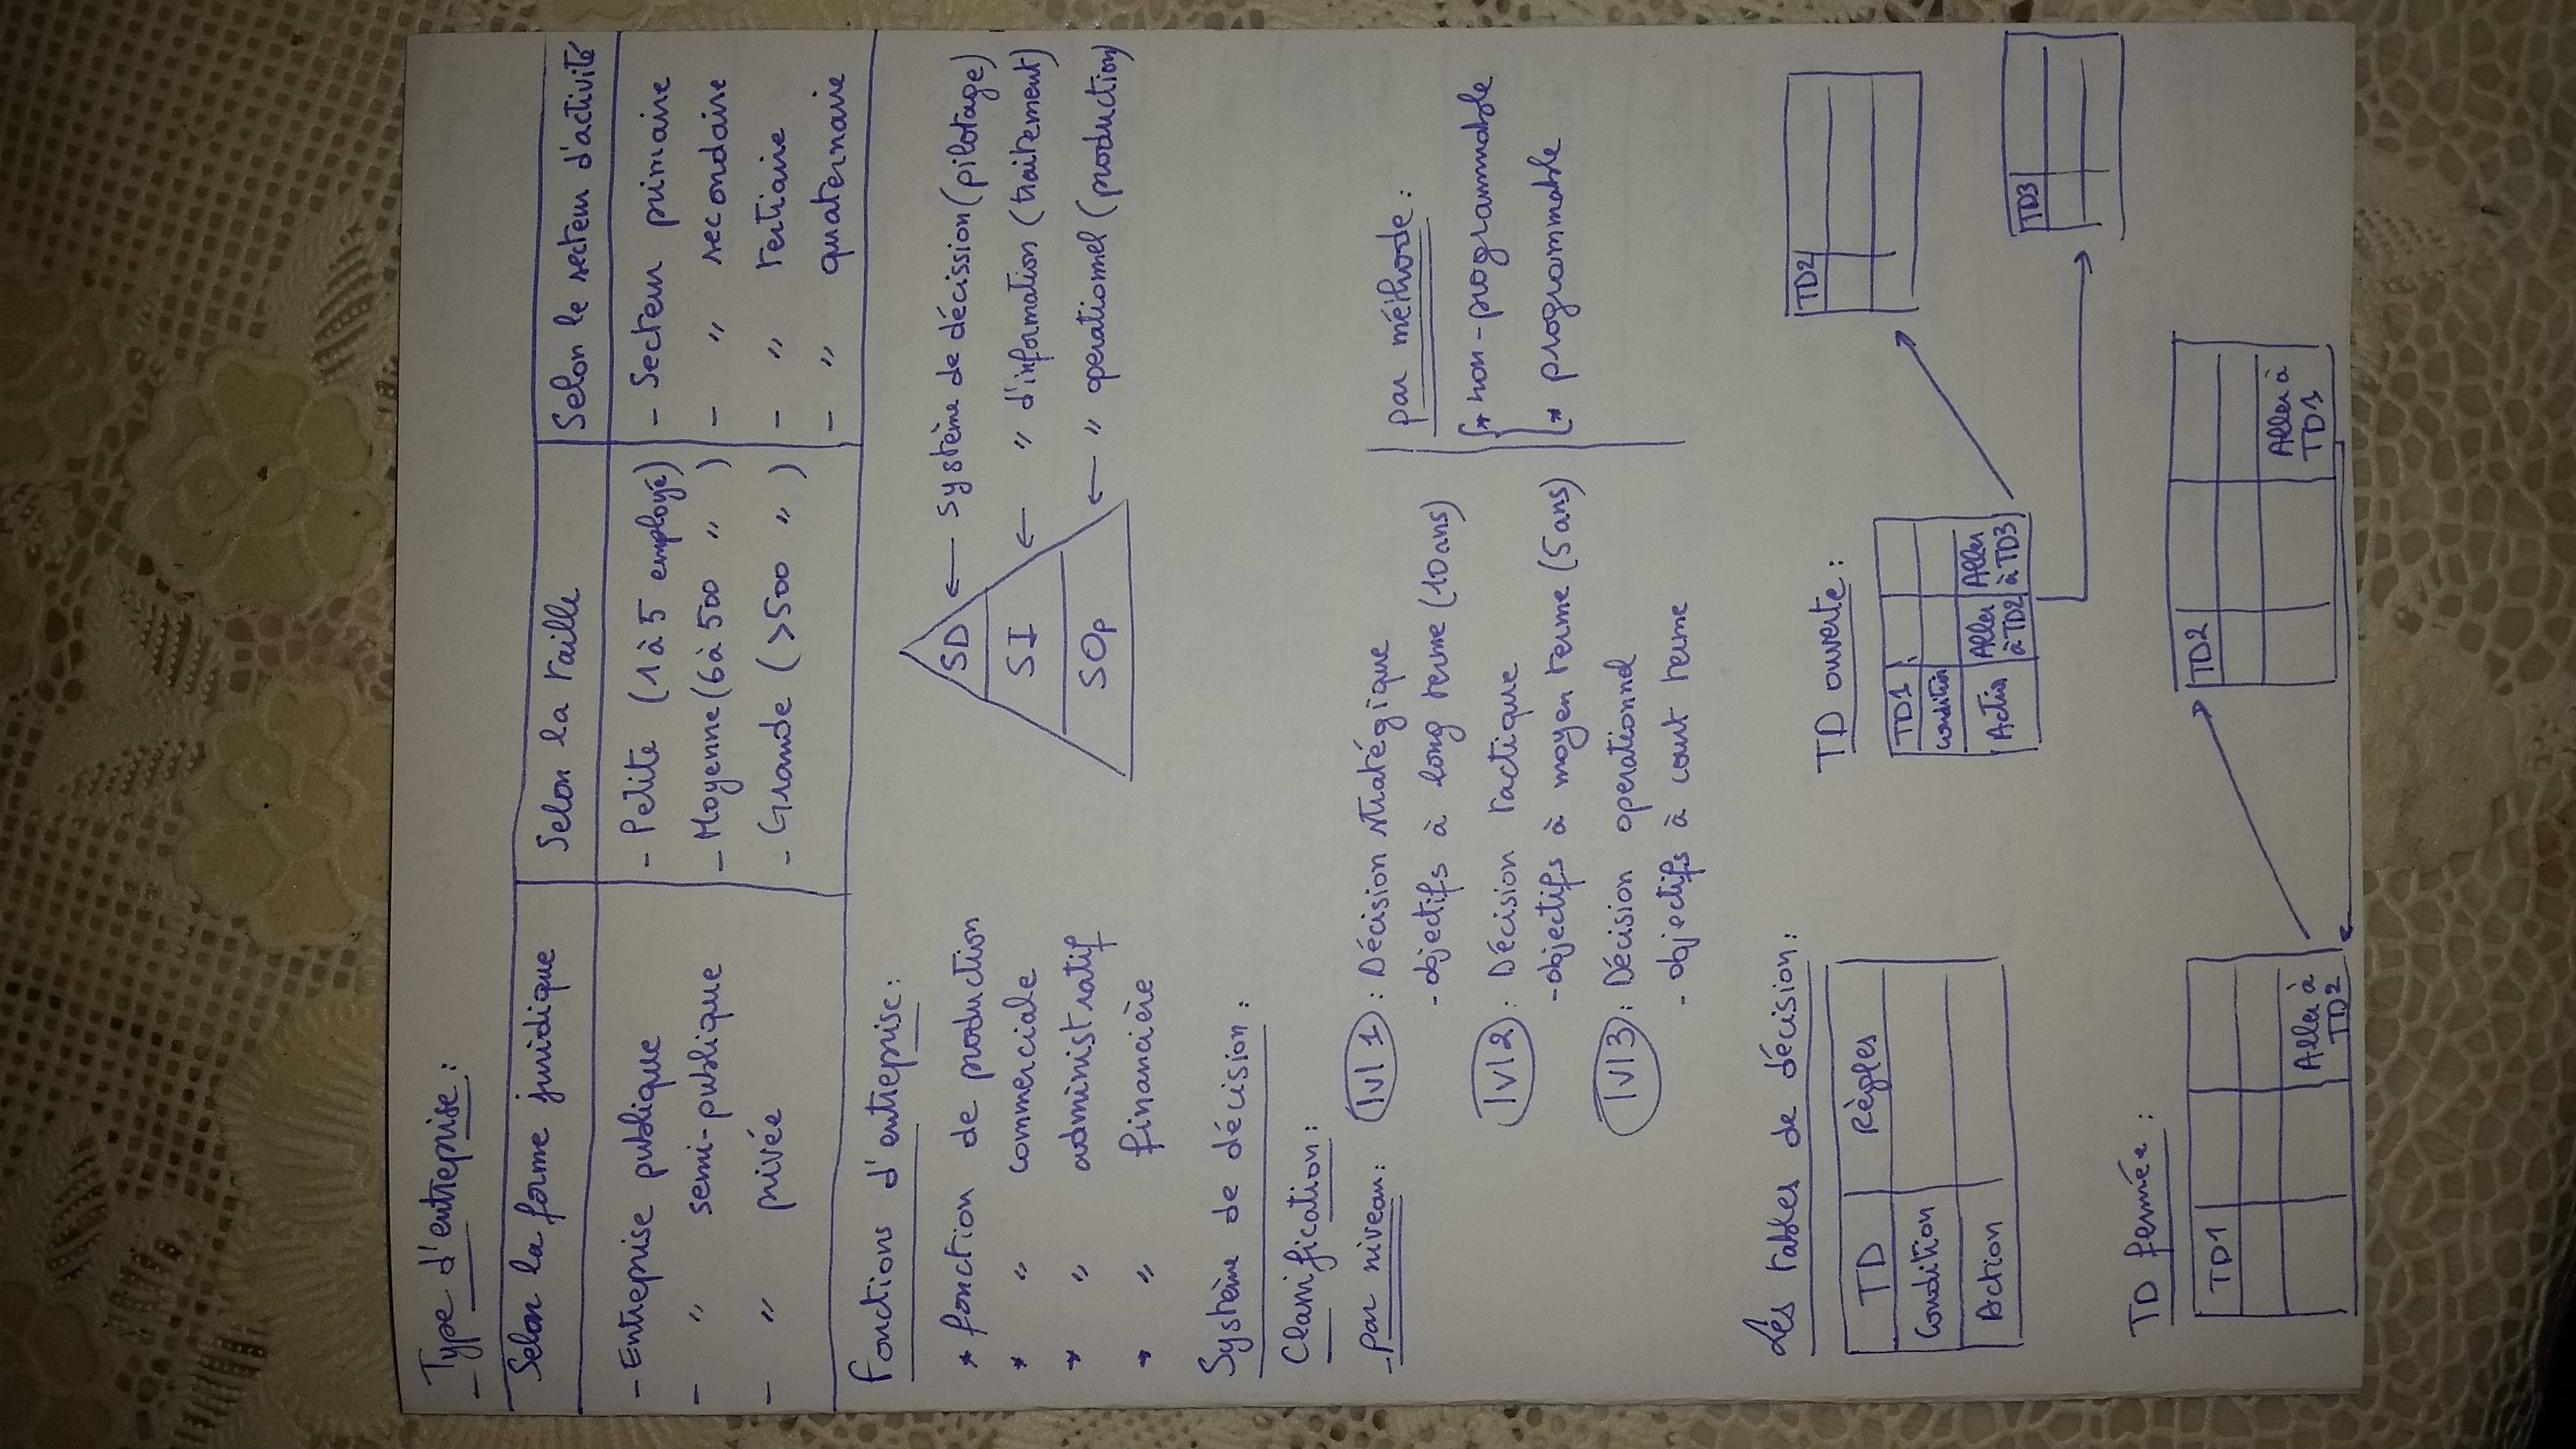 Type d'entreprise :
Selon la forme juridique
Selon la taille
Selon le secteur d'activité
- Entreprise publique
- " semi-publique
- " privée
- Petite (1 à 5 employé)
- Moyenne (6 à 500 " )
- Grande (>500 " )
- Secteur primaire
- " secondaire
- " tertiaire
- " quaternaire
Fonctions d'entreprise :
* fonction de production
* " commerciale
* " administratif
* " financière
SD ← Système de décission (pilotage)
SI ← " d'information (traitement)
SOp ← " operationnel (production)
Système de décision :
Classification :
par niveau :
lvl 1 : Décision stratégique
- objectifs à long terme (10 ans)
lvl 2 : Décision tactique
- objectifs à moyen terme (5 ans)
lvl 3 : Décision operationnel
- objectifs à court terme
par méthode :
* non-programmable
* programmable
Les tables de décision :
TD Règles
Condition
Action
TD ouverte :
TD1
Condition
Action
Aller
à TD2
Aller
à TD3
TD2
TD3
TD fermée :
TD1
Aller à
TD2
TD2
Aller à
TD1